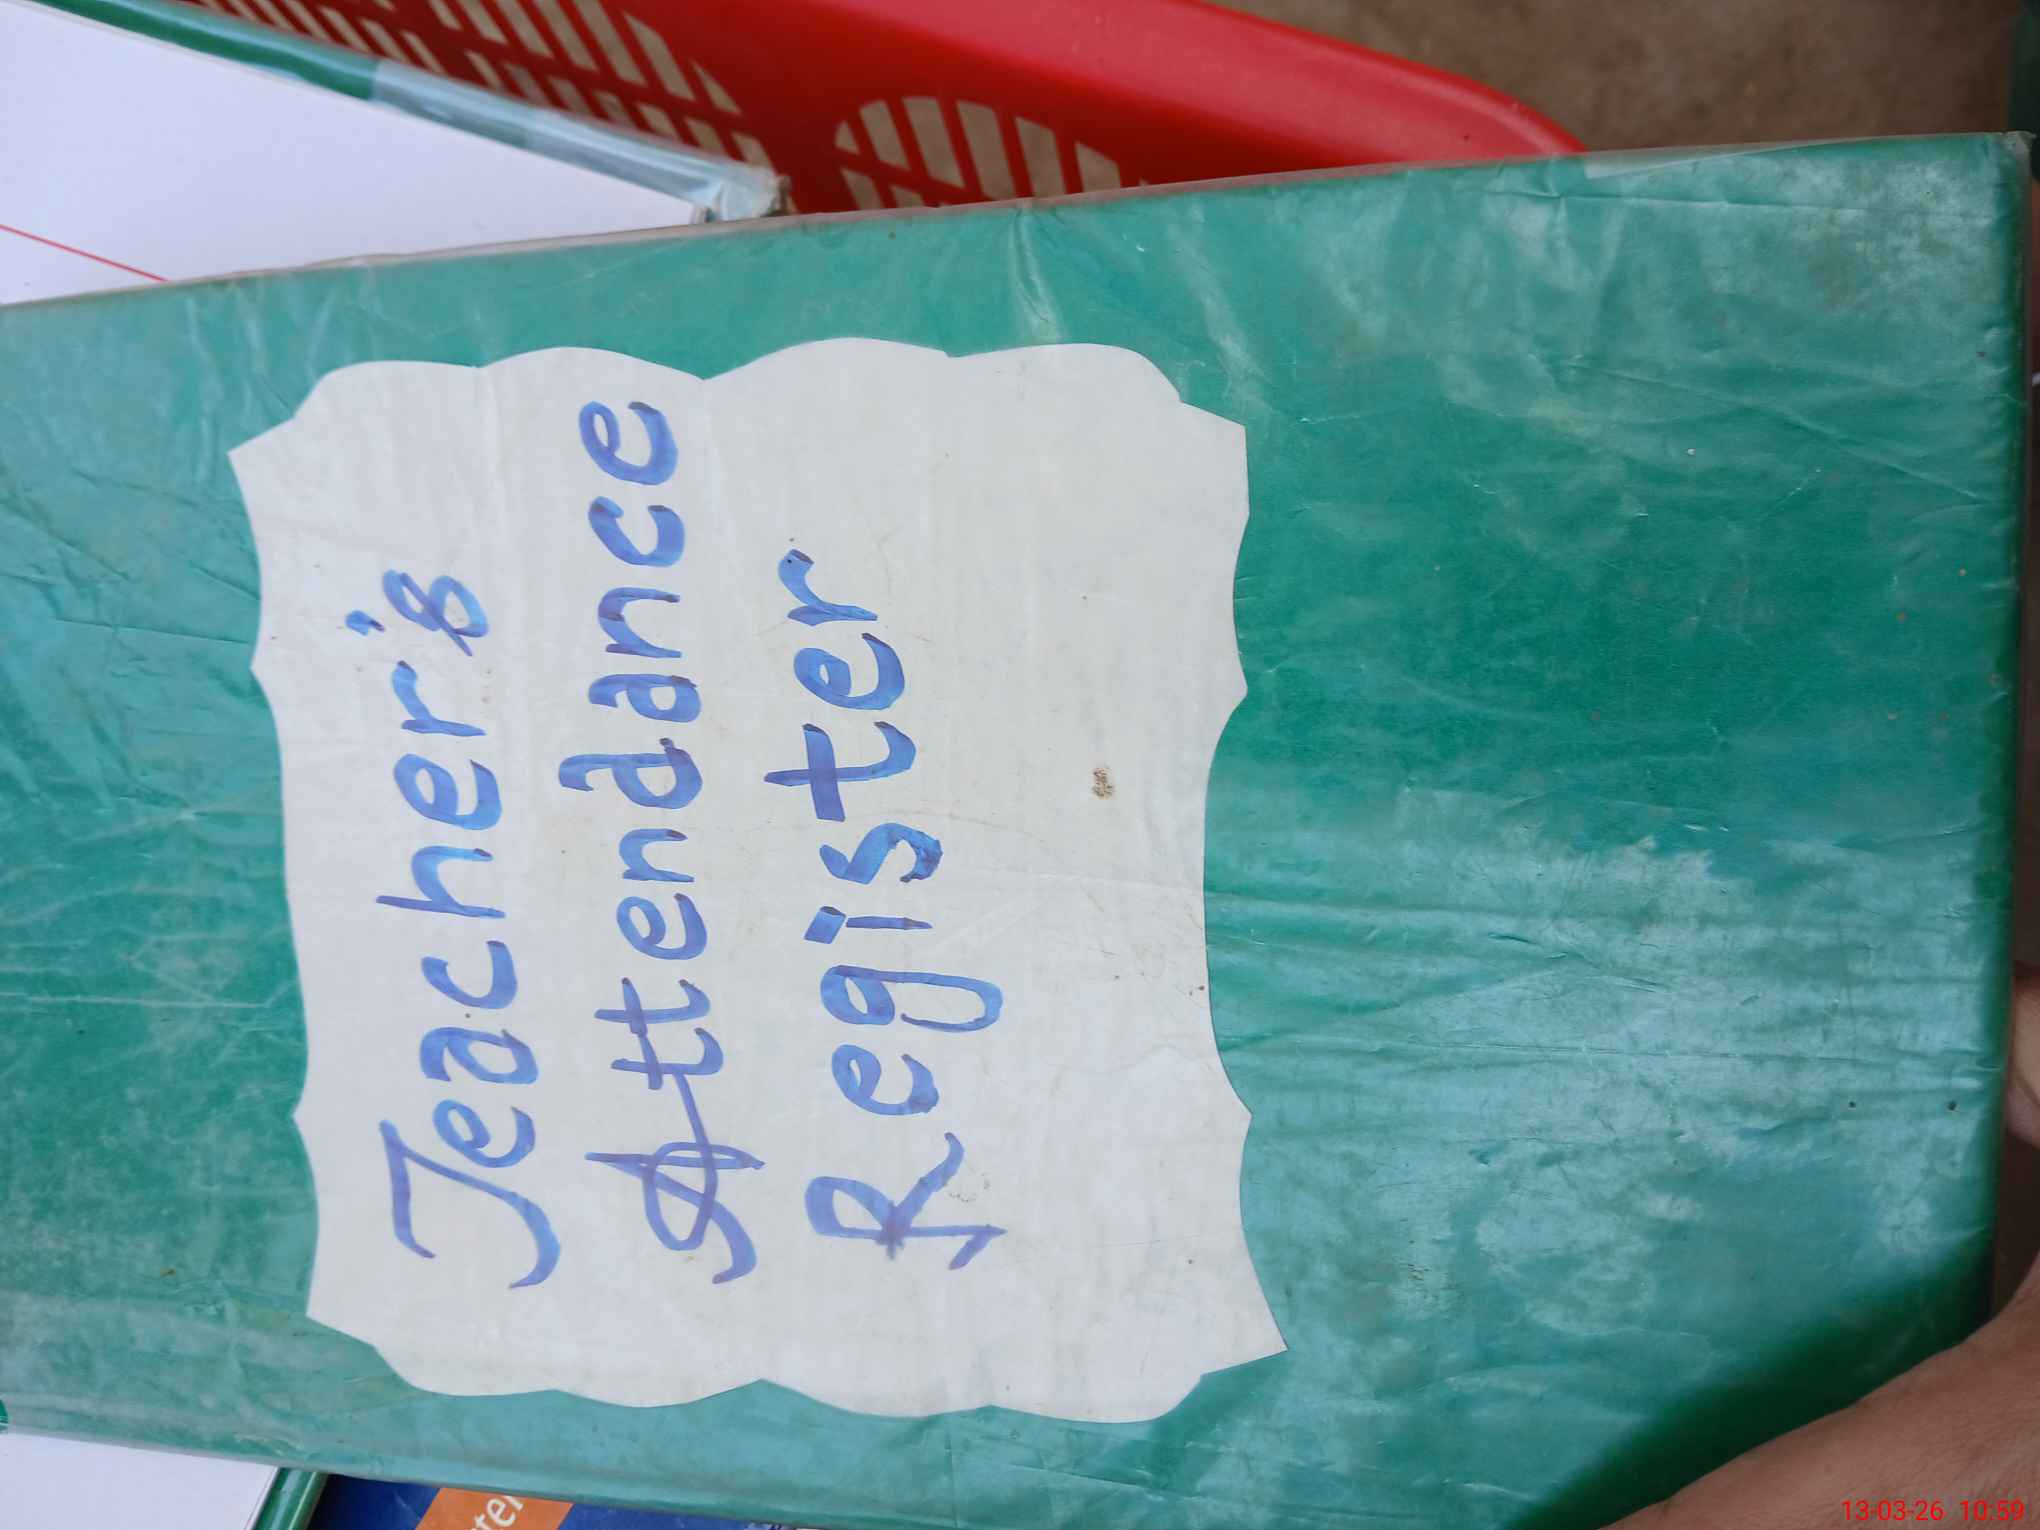 Teacher's
Attendance
Register
13-03-26 10:59